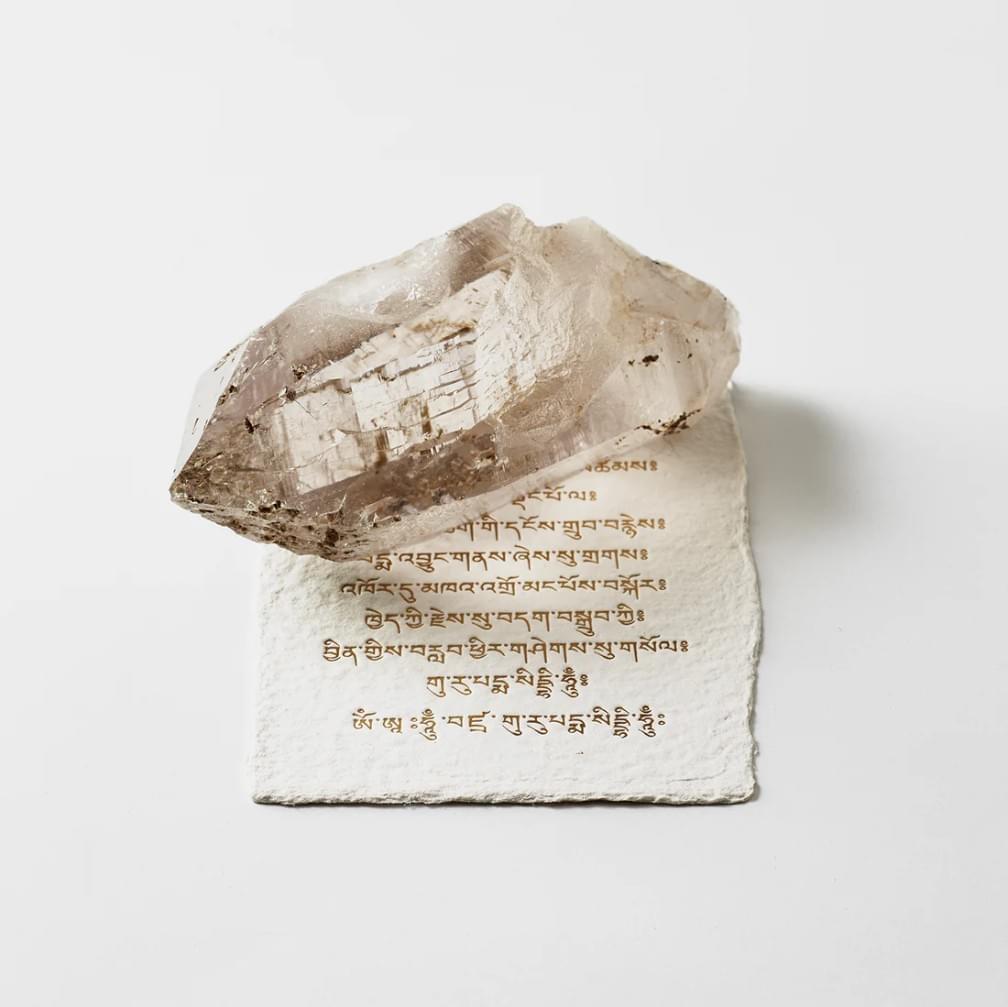 ཚམས༔
པོ་ལ༔
གི་དངོས་གྲུབ་བརྙེས༔
པདྨ་འབྱུང་གནས་ཞེས་སུ་གྲགས༔
འཁོར་དུ་མཁའ་འགྲོ་མང་པོས་བསྐོར༔
ཁྱེད་ཀྱི་རྗེས་སུ་བདག་བསྒྲུབ་ཀྱི༔
བྱིན་གྱིས་བརླབ་ཕྱིར་གཤེགས་སུ་གསོལ༔
གུ་རུ་པདྨ་སིདྡྷི་ཧཱུྃ༔
ཨོཾ་ཨཱཿཧཱུྃ་བཛྲ་གུ་རུ་པདྨ་སིདྡྷི་ཧཱུྃ༔